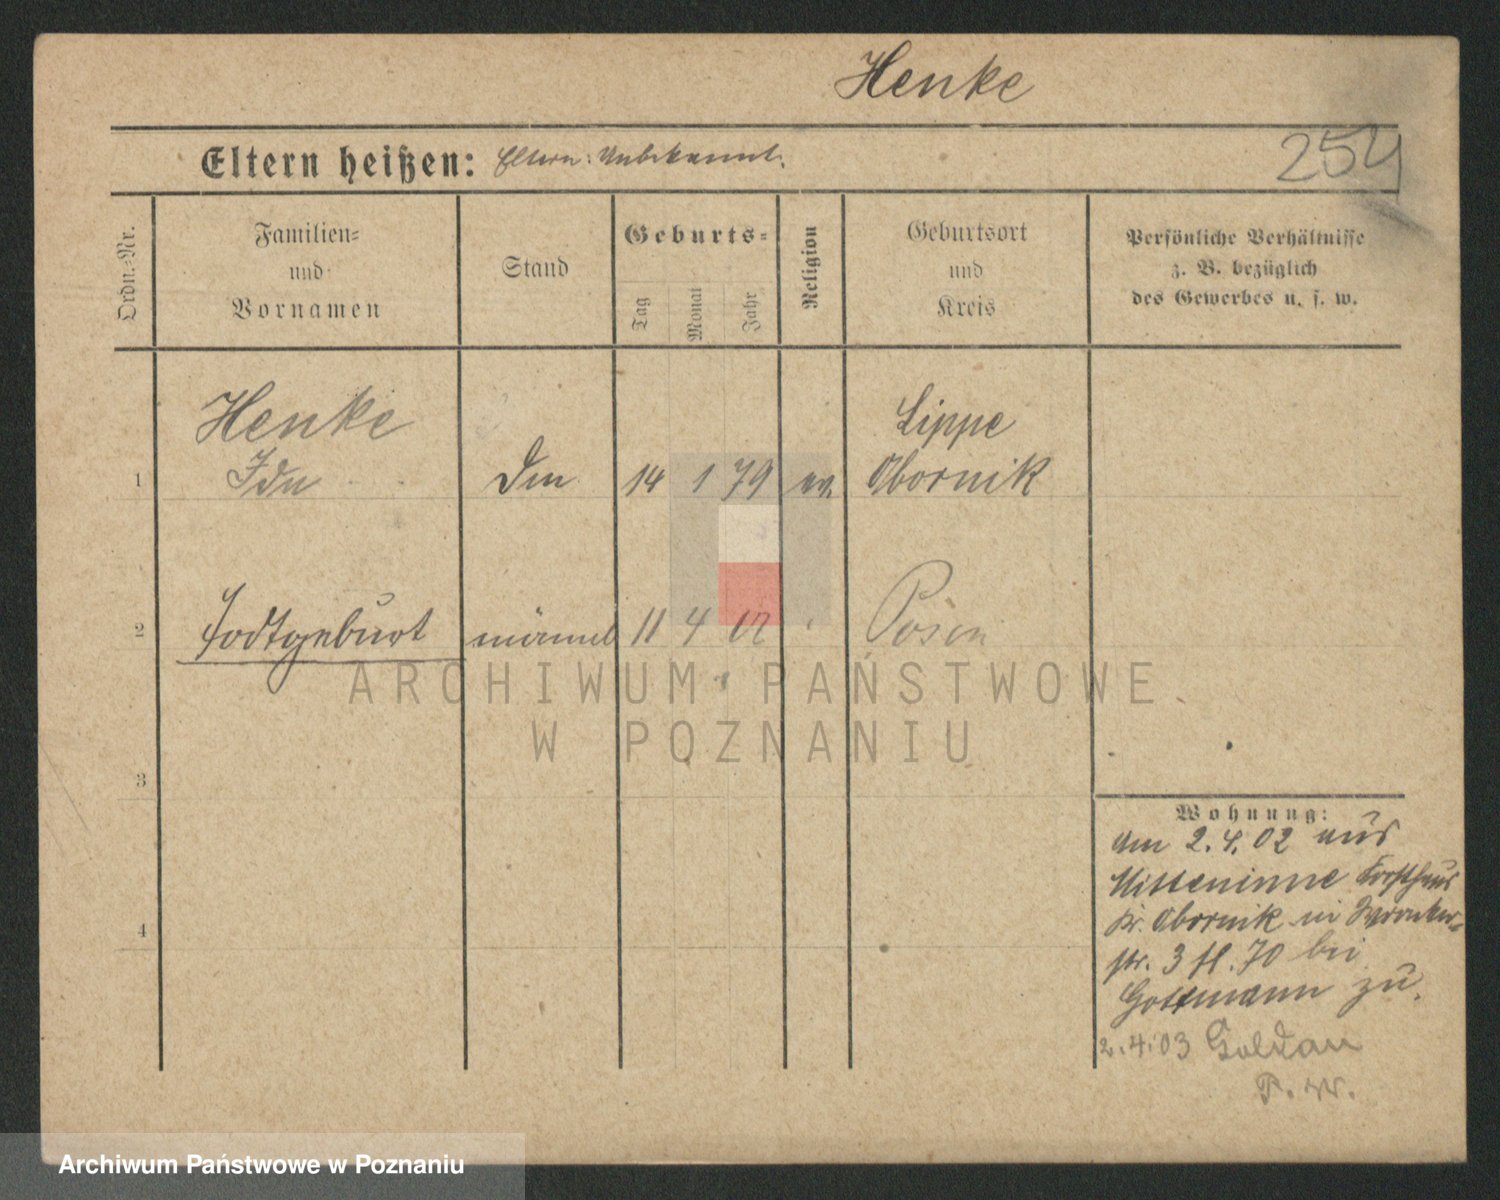 Henke
Eltern heißen: Eltern: Unbekannt.
254
Ordn.-Nr.
Familien-
und
Vornamen
Stand
Geburts-
Tag
Monat
Jahr
Religion
Geburtsort
und
Kreis
Persönliche Verhältnisse
z. B. bezüglich
des Gewerbes u. s. w.
Henke
Lippe
1 Ida 14 1 79 ev. Obornik
2 Todtgeburt männl 11 4 02 Posen
ARCHIWUM PAŃSTWOWE
W POZNANIU
3
4
Wohnung:
Am 2.4.02 aus
Forsthaus
Kr. Obornik in Wronker-
str. 3 II. 70 bei
Gottmann zu.
2.4.03 Goldau
P. W.
Archiwum Państwowe w Poznaniu